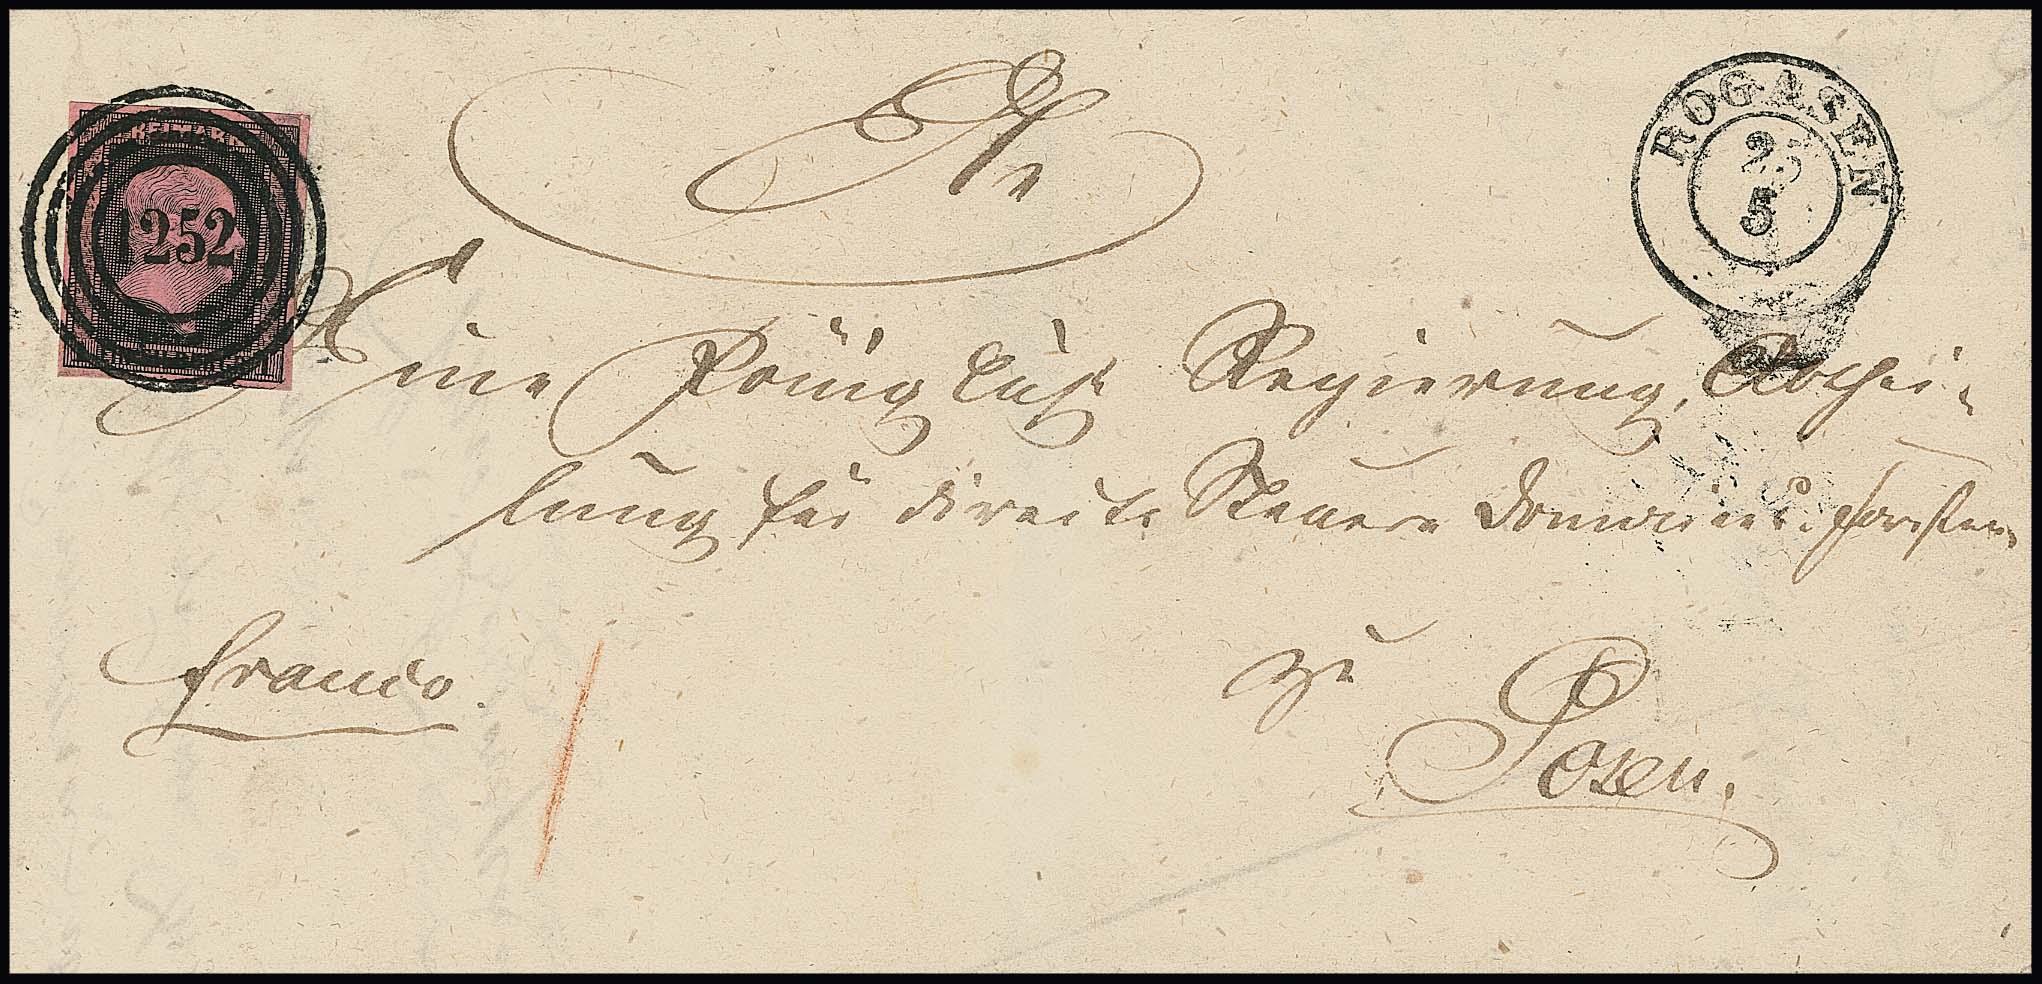 FREIMARKE
1252
SILBERGR.
ROGASEN
25
5
An
Eine Königliche Regierung, Abthei-
lung für directe Steuern Domainen u. Forsten
franco.
zu
Posen.